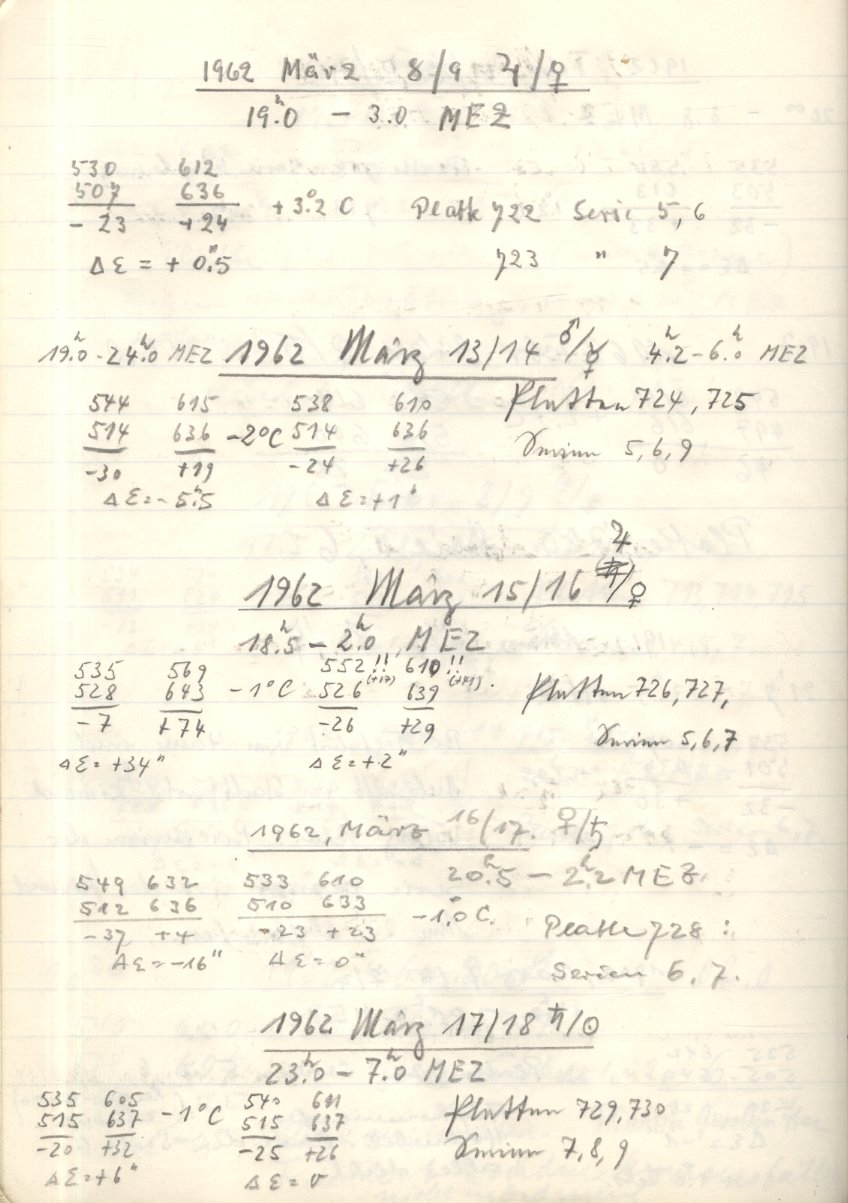 1962 März 8/9 ♃/♀
19.ʰ0 – 3.0 MEZ
530 612
507 636 +3.°2 C Platte 722 Serie 5,6
-23 +24
Δε = + 0."5 723 " 7
19.ʰ0-24.ʰ0 MEZ 1962 März 13/14 ♂/☿ 4.ʰ2-6.ʰ0 MEZ
544 615 538 610 Platten 724, 725
514 636 -2°C 514 636
-30 +19 -24 +26 Serien 5,6,9
Δε=-5."5 Δε=+1"
1962 März 15/16 ♃/♀
18.ʰ5 – 2.ʰ0 MEZ
535 569 552!! 610!!
528 643 -1°C 526 (+17) 639 (+41). Platten 726, 727,
-7 +74 -26 +29 Serien 5,6,7
Δε= +34" Δε=+2"
1962, März 16/17. ♀/♄
549 632 533 610 20.ʰ5 – 2.ʰ2 MEZ.
512 636 510 633 -1.°0 C.
-37 +4 -23 +23 Platte 728 :
Δε=-16" Δε= 0"
Serien 6.7.
1962 März 17/18 ♄/☉
23.ʰ0 – 7.ʰ0 MEZ
535 605 540 611 Platten 729,730
515 637 -1°C 515 637
-20 +32 -25 +26 Serien 7,8,9
Δε=+6" Δε= 0"